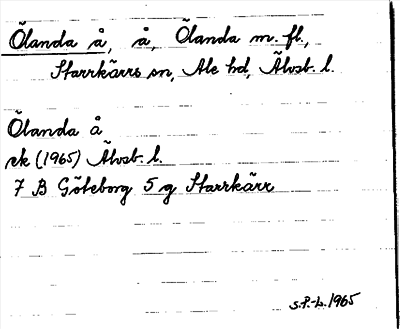 Ölanda å, å, Ölanda m. fl.,
Starrkärrs sn, Ale hd, Älvsb. l.
Ölanda å
ek (1965) Älvsb. l.
7 B Göteborg 5 g Starrkärr
S.P.-b. 1965